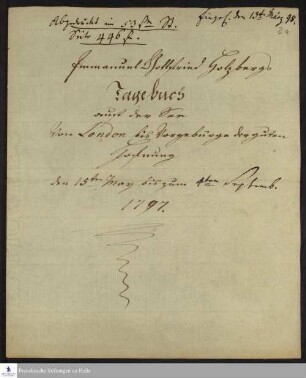 Abgedruckt in 53stn St.
Seite 446 f.
Eingel. den 13t März 98.
Emmanuel Gottfried Holzbergs
Tagebuch
auf der See
von London bis Vorgebürge der guten
Hoffnung
den 15ten May bis zum 4ten Septemb.
1797.
Franckesche Stiftungen zu Halle